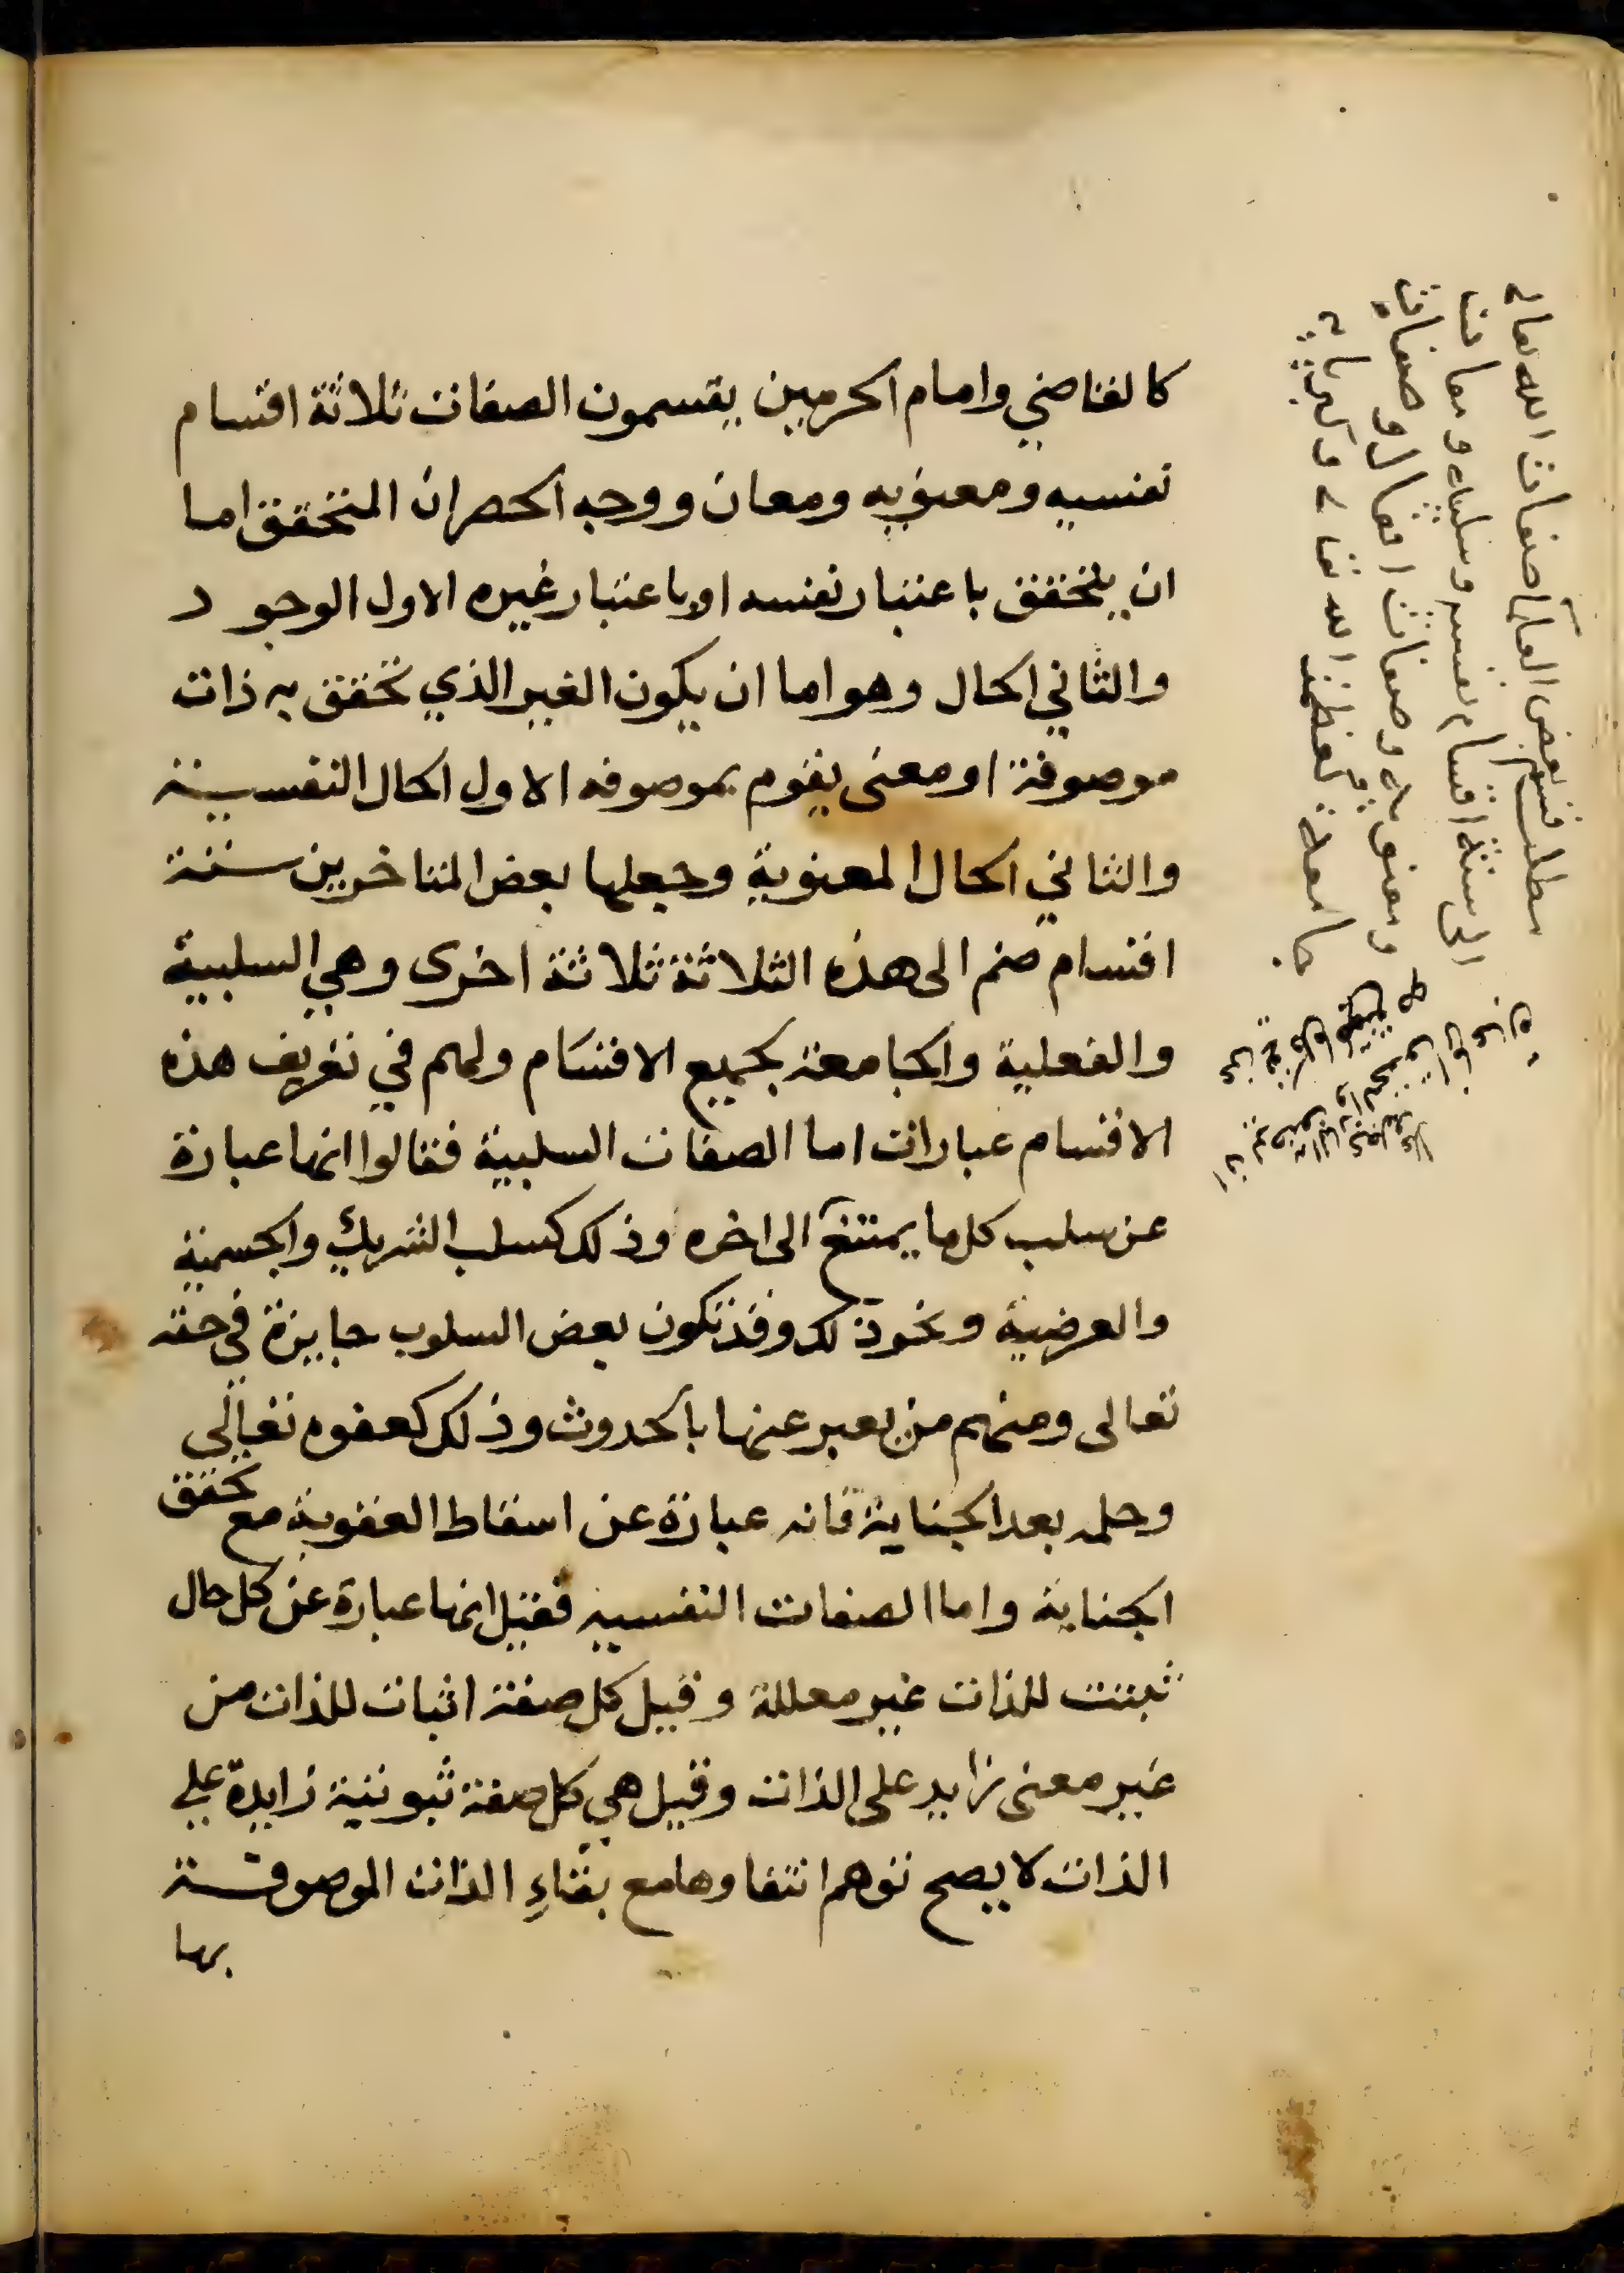 كالقاضي وامام الحرمين يقسمون الصفات ثلاثة اقسام
نفسيه ومعنويه ومعان ووجه الحصر ان المتحقق اما
ان يتحقق باعتبار نفسه او باعتبار غيره الاول الوجود
والثاني الحال وهو اما ان يكون الغير الذي تحقق به ذات
موصوفة او معنى يقوم بموصوفه الاول الحال النفسية
والثاني الحال المعنوية وجعلها بعض المتاخرين ستة
اقسام ضم الى هذه الثلاثة ثلاثة اخرى وهي السلبية
والفعلية والجامعة لجميع الاقسام ولهم في تعريف هذه
الاقسام عبارات اما الصفات السلبية فقالوا انها عبارة
عن سلب كل ما يمتنع الى اخره وذلك كسلب الشريك والجسمية
والعرضية ونحو ذلك وقد تكون بعض السلوب جايزة في حقه
تعالى ومنهم من يعبر عنها بالحدوث وذلك كعفوه تعالى
وحلمه بعد الجناية فانه عبارة عن اسقاط العقوبة مع تحقق
الجناية واما الصفات النفسيه فقيل انها عبارة عن كل حال
ثبتت للذات غير معللة وقيل كل صفة اثبات للذات من
غير معنى زايد على الذات وقيل هي كل صفة ثبوتية زايدة على
الذات لا يصح توهم انتفاوها مع بقاء الذات الموصوفة
بها
مطلب قسم بعض العلماء صفات الله تعالى
الى ستة اقسام نفسيه وسلبيه ومعان
ومعنويه وصفات افعال وصفات
جامعة كعظمة الله تعالى وكبريايه